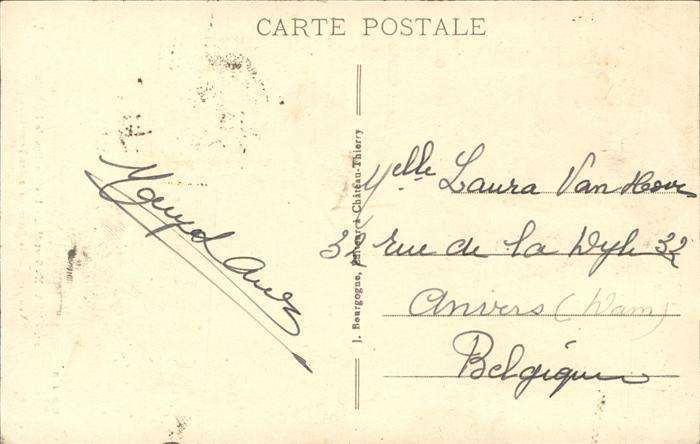 CARTE POSTALE
J. Bourgogne, Editeur à Château-Thierry
Melle Laura Van Hove
32 rue de la Dyle 32
Anvers (Wam)
Belgique